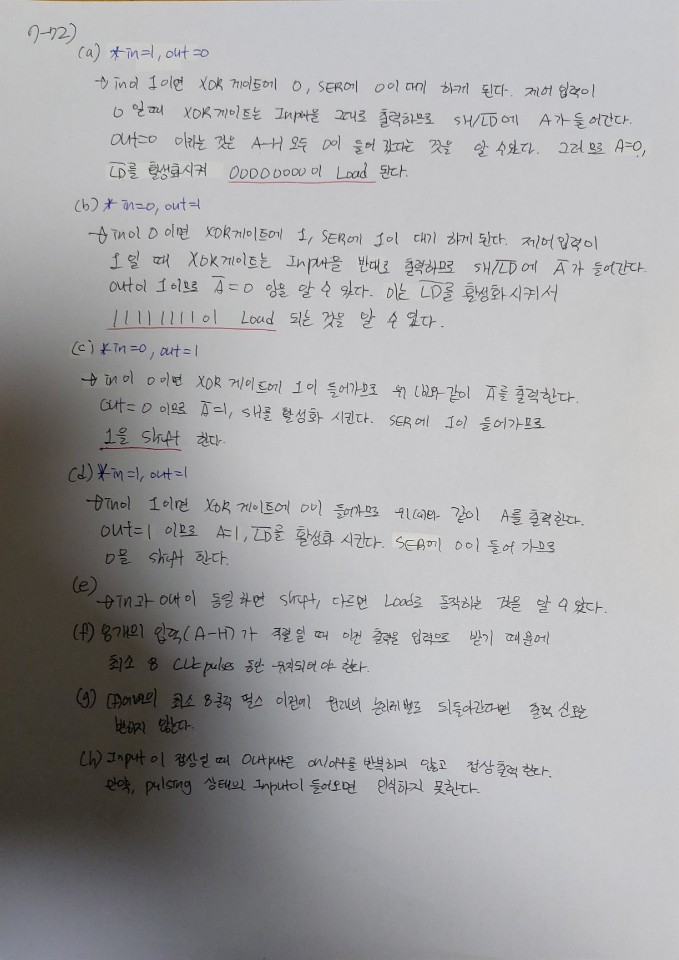 7-72)
(a) * in=1, out=0
→ in이 1이면 XOR 게이트에 0, SER에 0이 대기 하게 된다. 제어 입력이
0 일 때 XOR게이트는 Input을 그대로 출력하므로 SH/L̅D̅에 A가 들어간다.
out=0 이라는 것은 A-H 모두 0이 들어 갔다는 것을 알 수있다. 그러므로 A=0,
L̅D̅를 활성화시켜 00000000이 Load 된다.
(b) * in=0, out=1
→ in이 0 이면 XOR게이트에 1, SER에 1이 대기 하게 된다. 제어입력이
1일 때 XOR게이트는 Input을 반대로 출력하므로 SH/L̅D̅에 A̅가 들어간다.
out이 1이므로 A̅=0 임을 알 수 있다. 이는 L̅D̅를 활성화시켜서
11111111이 Load 되는 것을 알 수 있다.
(c) * in=0, out=1
→ in이 0이면 XOR 게이트에 1이 들어가므로 위 (b)와 같이 A̅를 출력한다.
out=0 이므로 A̅=1, SH를 활성화 시킨다. SER에 1이 들어가므로
1을 Shift 한다.
(d) * in=1, out=1
→ in이 1이면 XOR게이트에 0이 들어가므로 위(a)와 같이 A를 출력한다.
out=1 이므로 A=1, L̅D̅를 활성화 시킨다. SER에 0이 들어 가므로
0을 shift 한다.
(e)
→ in과 out이 동일하면 Shift, 다르면 Load로 동작하는 것을 알 수 있다.
(f) 8개의 입력(A-H)가 직렬일 때 이전 출력을 입력으로 받기 때문에
최소 8 CLK pulses 동안 유지되어야 한다.
(g) (f)에서의 최소 8클럭 펄스 이전에 원래의 논리레벨로 되돌아간다면 출력 신호는
변하지 않는다.
(h) Input이 접상일 때 Output은 on/off를 반복하지 않고 접상출력한다.
만약, pulsing 상태의 Input이 들어오면 인식하지 못한다.